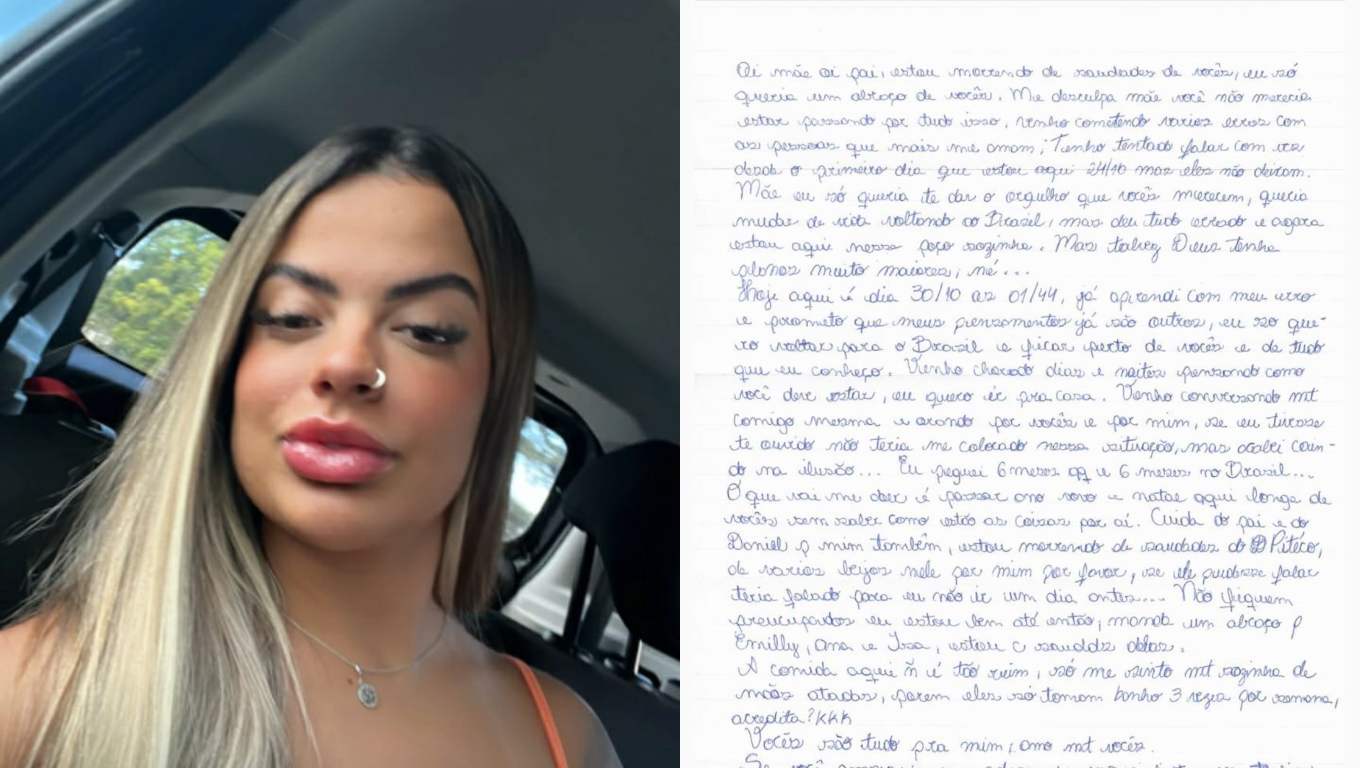 Oi mãe oi pai, estou morrendo de saudades de vocês, eu só
queria um abraço de vocês. Me desculpa mãe você não merecia
estar passando por tudo isso, venho cometendo varios erros com
as pessoas que mais me amam; Tenho tentado falar com vcs
desde o primeiro dia que estou aqui 24/10 mas eles não deixam.
Mãe eu só queria te dar o orgulho que vocês merecem, queria
mudar de vida voltando ao Brasil, mas deu tudo errado e agora
estou aqui nesse poço sozinha. Mas talvez Deus tenha
planos muito maiores, né...
Hoje aqui é dia 30/10 as 01/44, já aprendi com meu erro
e prometo que meus pensamentos já são outros, eu so que-
ro voltar para o Brasil e ficar perto de vocês e de tudo
que eu conheço. Venho chorado dias e noites pensando como
você deve estar, eu quero ir pra casa. Venho conversando mt
comigo mesma e orando por vocês e por mim, se eu tivesse
te ouvido não teria me colocado nessa situação, mas acabei cain-
do na ilusão... Eu peguei 6 meses aq e 6 meses no Brasil...
O que vai me doer é passar ano novo e natal aqui longe de
vocês sem saber como estão as coisas por aí. Cuida do pai e do
Daniel p mim também, estou morrendo de saudades do Pitéco,
de varios beijos nele por mim por favor, se ele pudesse falar
teria falado para eu não ir um dia antes... Não fiquem
preucupados eu estou bem até então, manda um abraço p
Emilly, Ana e Isa, estou c saudds delas.
A comida aqui ñ é tão ruim, só me sinto mt sozinha de
mãos atadas, porem eles só tomam banho 3 vezes por semana,
acredita? KKK
Vocês são tudo pra mim, amo mt vocês.
Se você